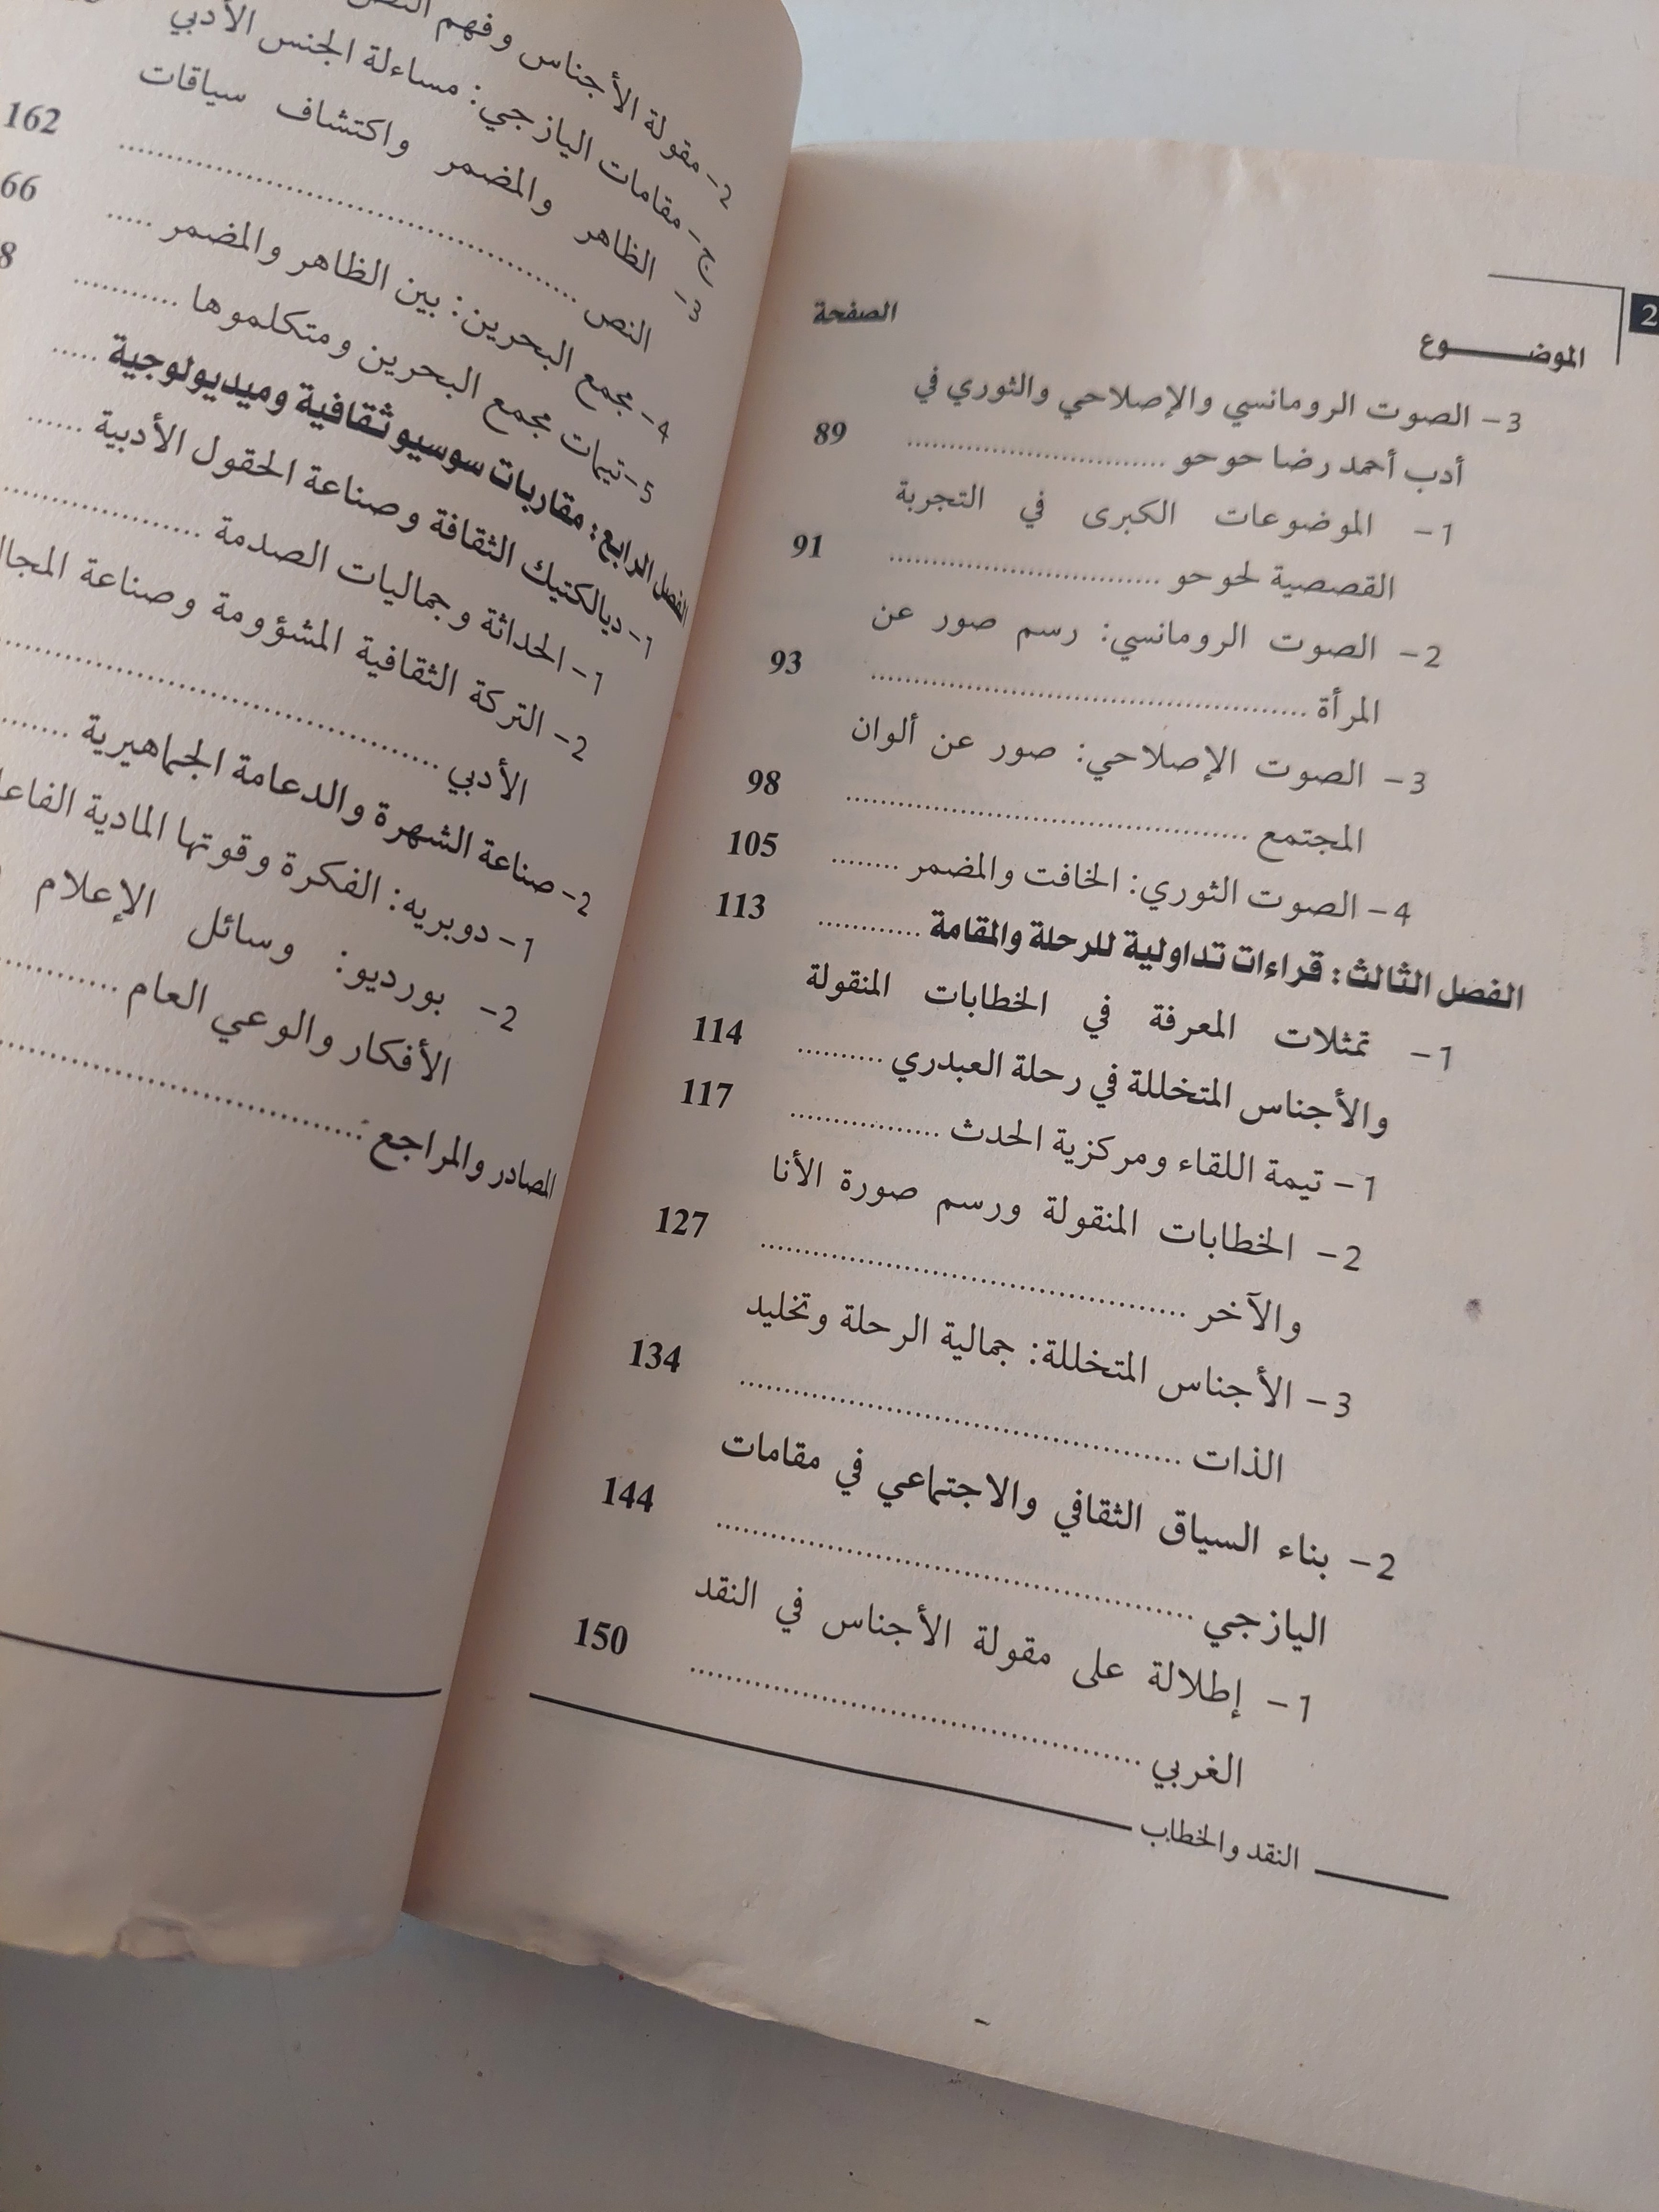 2
الموضـــــوع الصفحة
3- الصوت الرومانسي والإصلاحي والثوري في
أدب أحمد رضا حوحو ............................ 89
1- الموضوعات الكبرى في التجربة
القصصية لحوحو .............................. 91
2- الصوت الرومانسي: رسم صور عن
المرأة ................................................ 93
3- الصوت الإصلاحي: صور عن ألوان
المجتمع ............................................ 98
4- الصوت الثوري: الخافت والمضمر ........ 105
الفصل الثالث: قراءات تداولية للرحلة والمقامة ............ 113
1- تمثلات المعرفة في الخطابات المنقولة
والأجناس المتخللة في رحلة العبدري .......... 114
1- تيمة اللقاء ومركزية الحدث ................. 117
2- الخطابات المنقولة ورسم صورة الأنا
والآخر ................................................ 127
3- الأجناس المتخللة: جمالية الرحلة وتخليد
الذات .................................................. 134
2- بناء السياق الثقافي والاجتماعي في مقامات
اليازجي ...................................................... 144
1- إطلالة على مقولة الأجناس في النقد
الغربي ................................................... 150
النقد والخطاب
2- مقولة الأجناس وفهم النص
ج- مقامات اليازجي: مساءلة الجنس الأدبي
3- الظاهر والمضمر واكتشاف سياقات
النص .................................................... 162
4- مجمع البحرين: بين الظاهر والمضمر ..... 66
5- تيمات مجمع البحرين ومتكلموها ........... 8
الفصل الرابع: مقاربات سوسيوثقافية وميديولوجية .....
1- ديالكتيك الثقافة وصناعة الحقول الأدبية ......
1- الحداثة وجماليات الصدمة ......................
2- التركة الثقافية المشؤومة وصناعة المجال
الأدبي ..................................................
2- صناعة الشهرة والدعامة الجماهيرية ........
1- دوبريه: الفكرة وقوتها المادية
2- بورديو: وسائل الإعلام
الأفكار والوعي العام .............
المصادر والمراجع .........................................